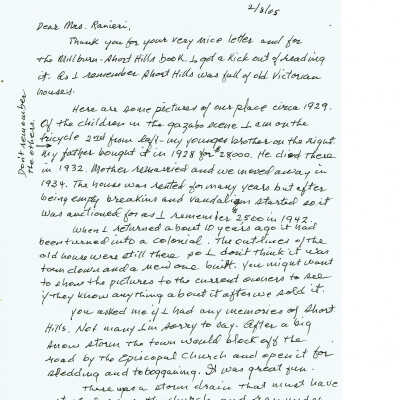 2/8/05
Dear Mrs. Ranieri,
Thank you for your very nice letter and for
the Millburn-Short Hills book. I got a kick out of reading
it. As I remember Short Hills was full of old Victorian
houses.
Here are some pictures of our place circa 1929.
Of the children in the gazabo scene I am on the
tricycle 2nd from left - my younger brother on the right.
My father bought it in 1928 for $28000. He died there
in 1932. Mother remarried and we moved away in
1934. The house was rented for many years but after
being empty breakins and vandalism started so it
was auctioned for as I remember $2500 in 1942.
When I returned about 10 years ago it had
been turned into a colonial. The outlines of the
old house were still there so I don't think it was
torn down and a new one built. You might want
to show the pictures to the current owners to see
if they know anything about it after we sold it.
You asked me if I had any memories of Short
Hills. Not many I'm sorry to say. After a big
snow storm the town would block off the
road by the Episcopal Church and open it for
sledding and tobogganing. It was great fun.
There was a storm drain that must have
the church and ran under
Don't remember
the others.